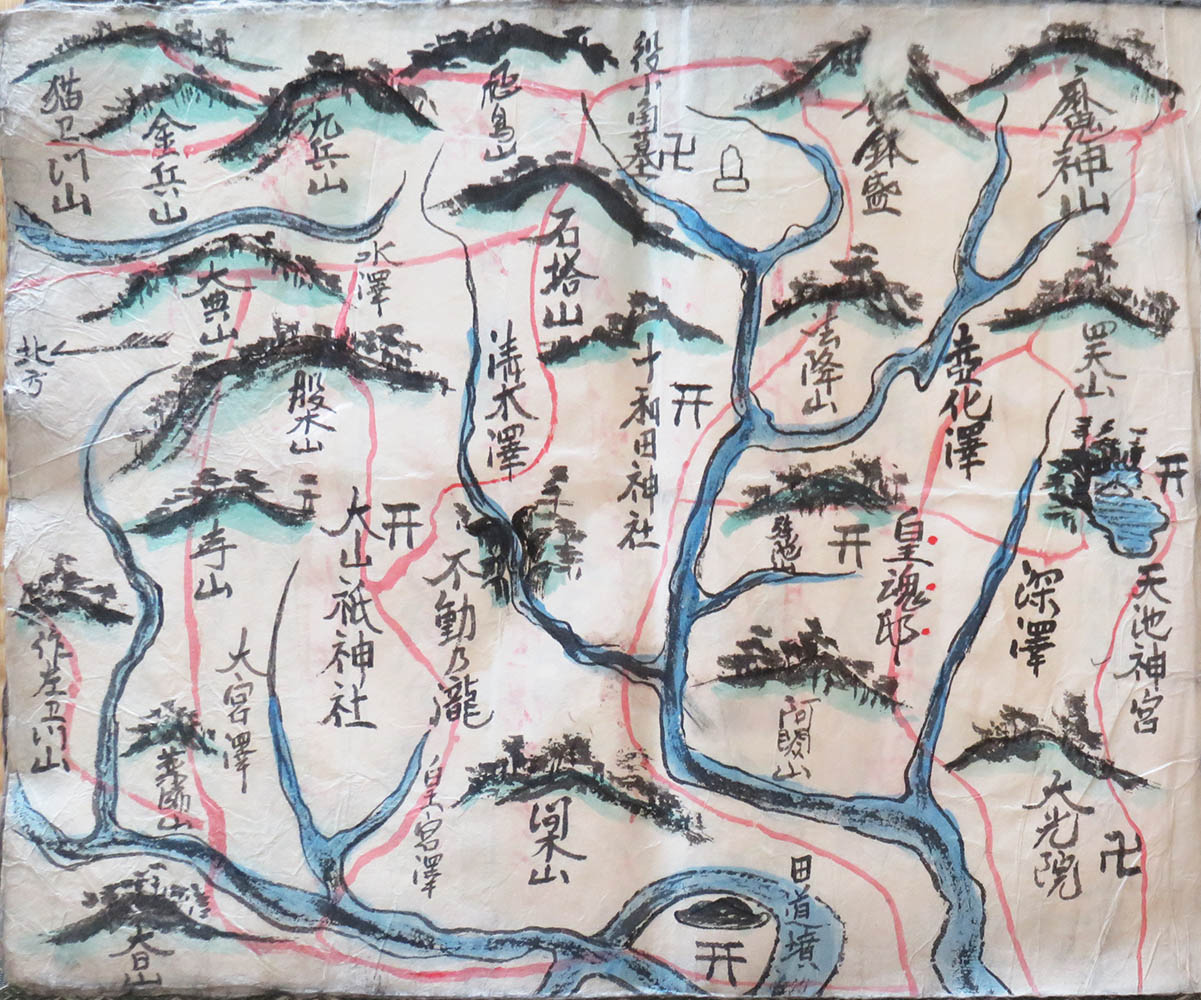 猫卫门山
金兵山
九兵山
飛鳥山
役小角墓
卍
鉢盛
魔神山
石塔山
水澤
大典山
北方
般若山
清水澤
十和田神社
法降山
壺化澤
四天山
寺山
大山祇神社
不動乃瀧
皇魂邸
深澤
天池神宮
作左卫门山
大宮澤
薬師山
皇宮澤
阿闍山
大光院
卍
田道墳
大日山